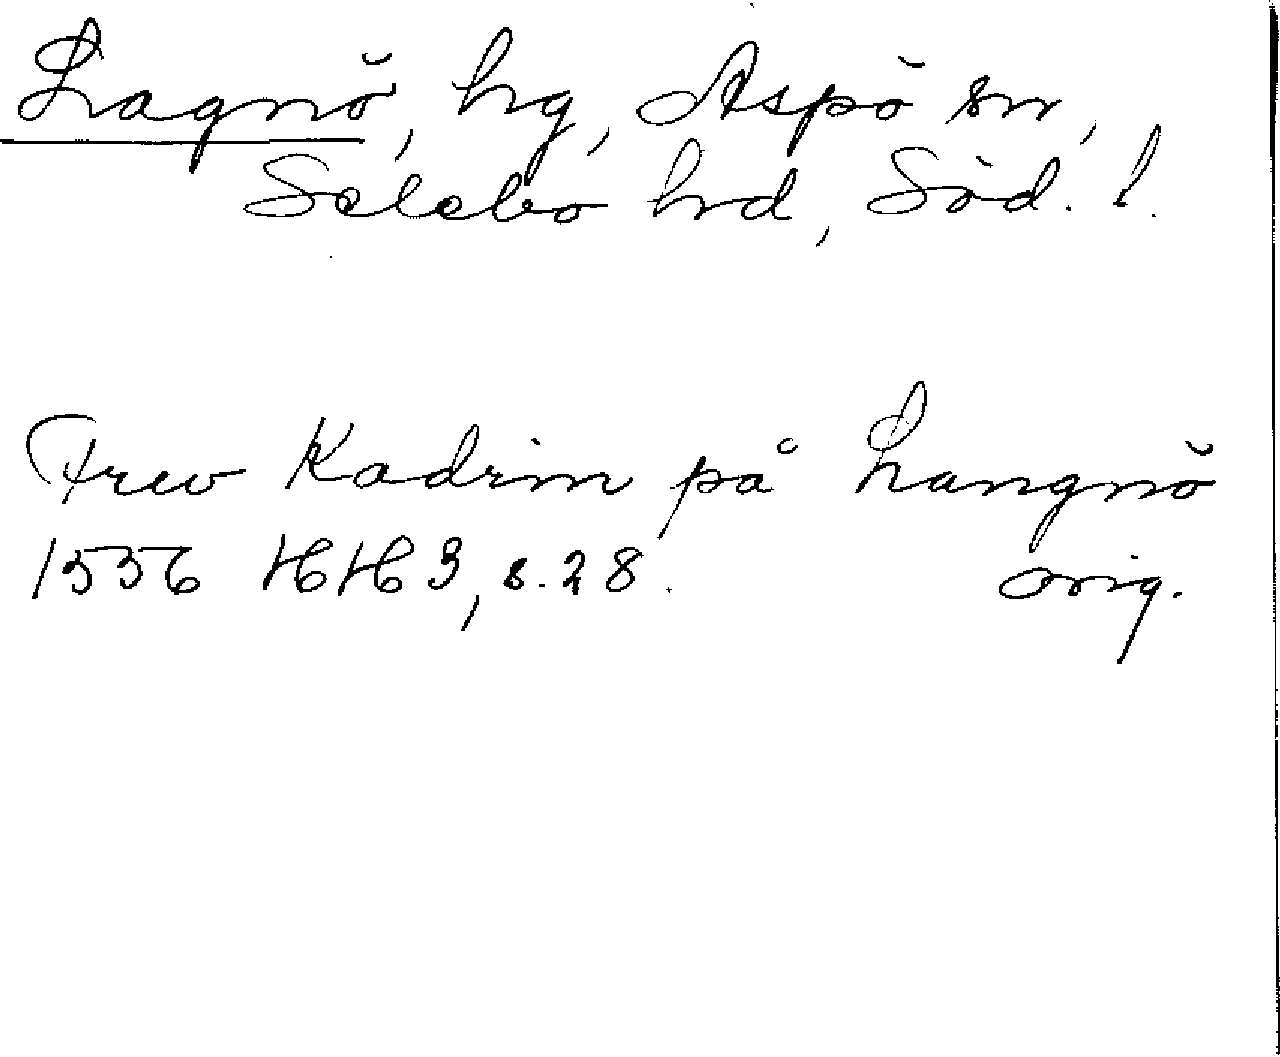 Lagnö, hg, Aspö sn,
Selebo hrd, Söd. l.
Frw Kadrin på Langnö
1556 HH 3, s. 28. orig.